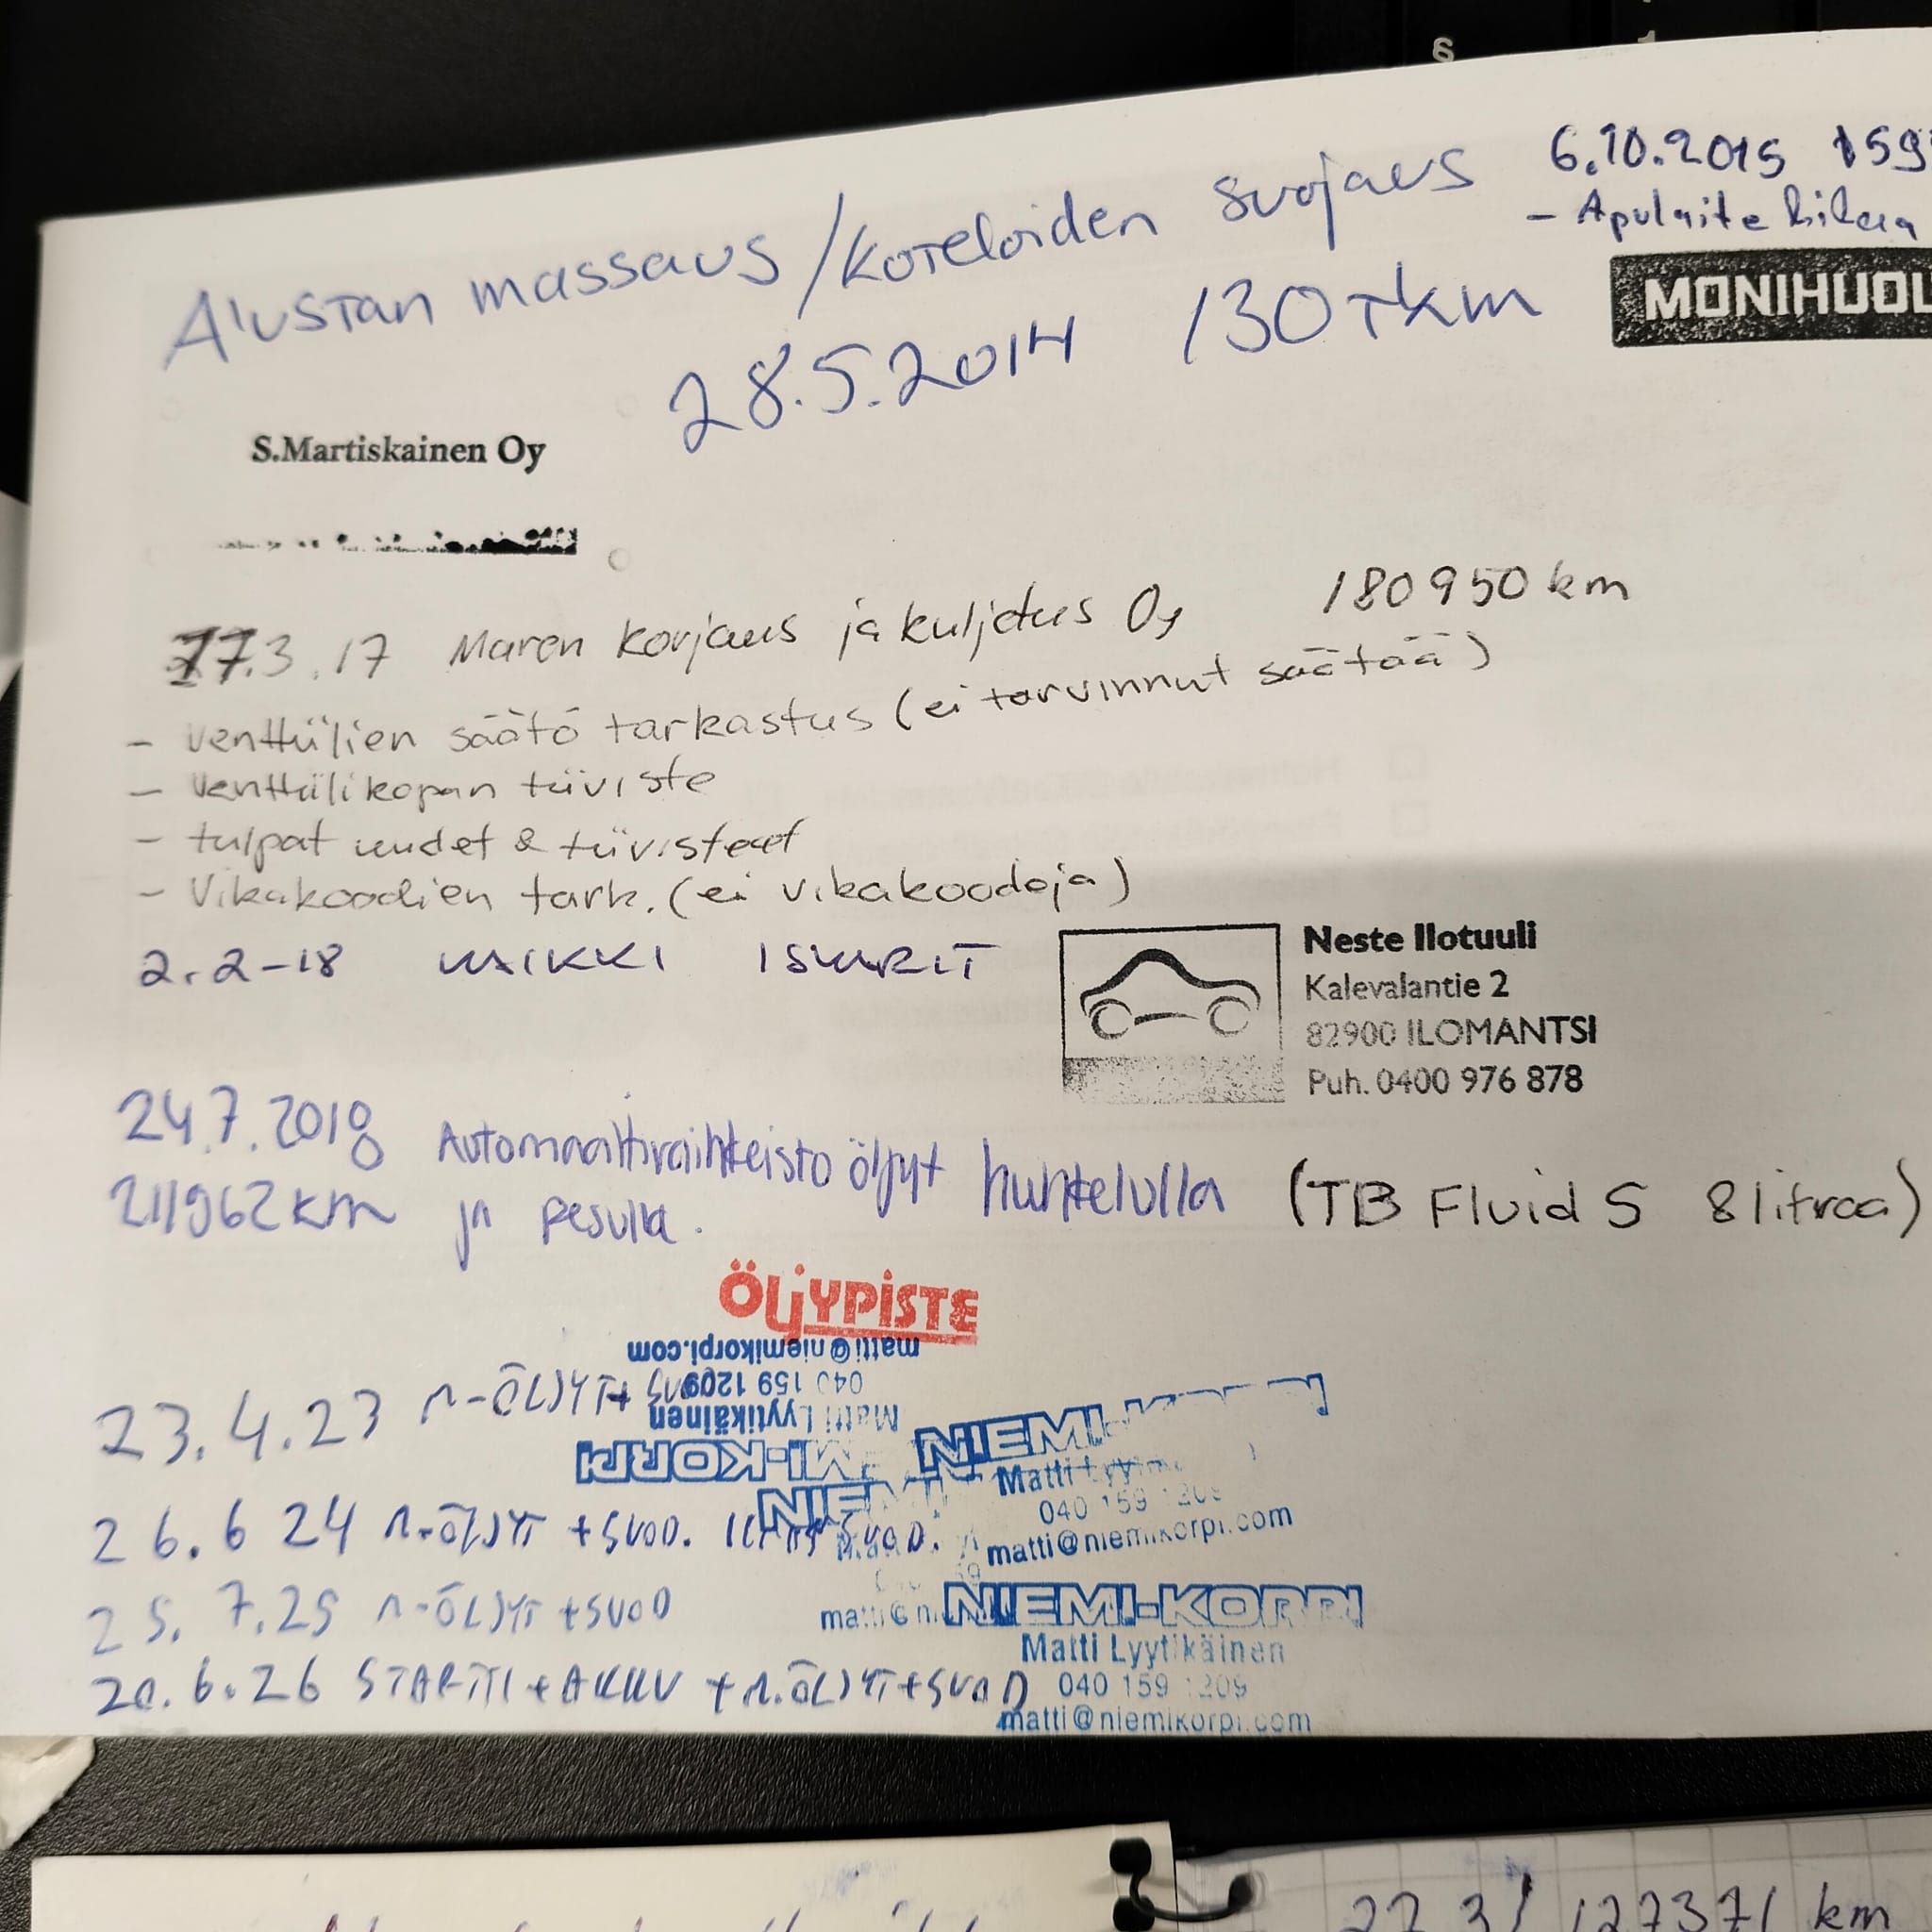 6.10.2015 159
- Apulaite hihna
MONIHUOL
Alustan massaus/koteloiden suojaus
28.5.2014 130 tkm
S.Martiskainen Oy
17.3.17 Maren korjaus ja kuljetus Oy 180950 km
- venttiilien säätö tarkastus (ei tarvinnut säätää)
- Venttiilikopan tiiviste
- tulpat uudet & tiivisteet
- Vikakoodien tark. (ei vikakoodeja)
2.2-18 KAIKKI ISKARIT
Neste Ilotuuli
Kalevalantie 2
82900 ILOMANTSI
Puh. 0400 976 878
24.7.2018 Automaattivaihteisto öljyt huhtelulla (TB Fluid S 8 litraa)
211962 km ja pesulla.
ÖLJYPISTE
matti@niemikorpi.com
040 159 1209
Matti Lyytikäinen
MI-KORPI
23.4.23 M-ÖLJYT+
NIEMI-K
Matti Lyyti
040 159 120
matti@niemikorpi.com
NIEM
26.6 24 M-ÖLJYT +SUOD. SUOD.
25.7.25 M-ÖLJYT +SUOD
NIEMI-KORPI
Matti Lyytikäinen
040 159 1209
matti@niemikorpi.com
20.6.26 STARTTI+AKKU +M.ÖLJYT+SUOD
127371 km